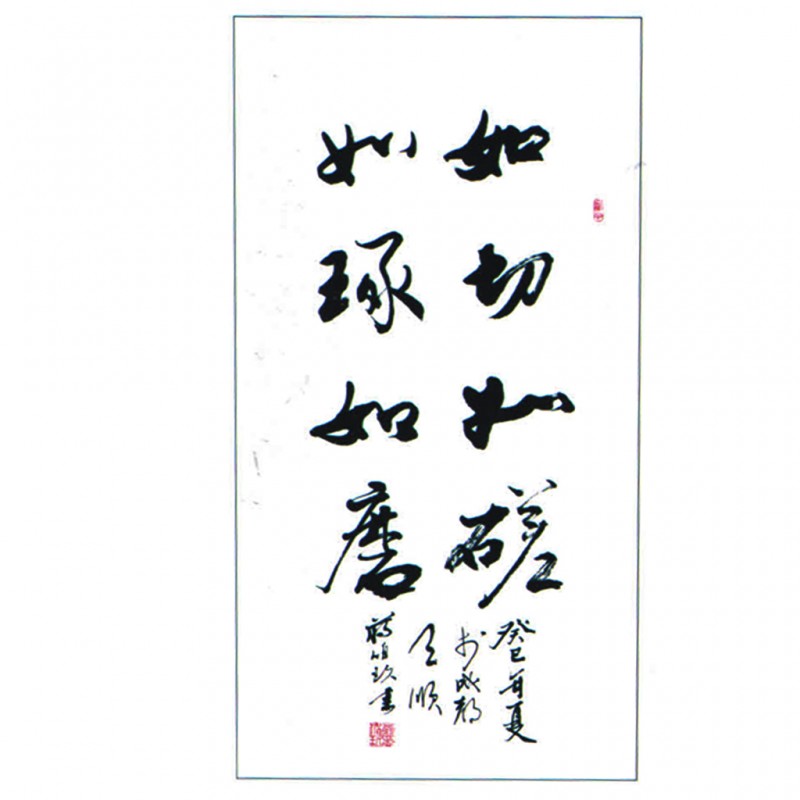 如切如磋
如琢如磨
癸巳首夏
于成都
天顺
蒋
书